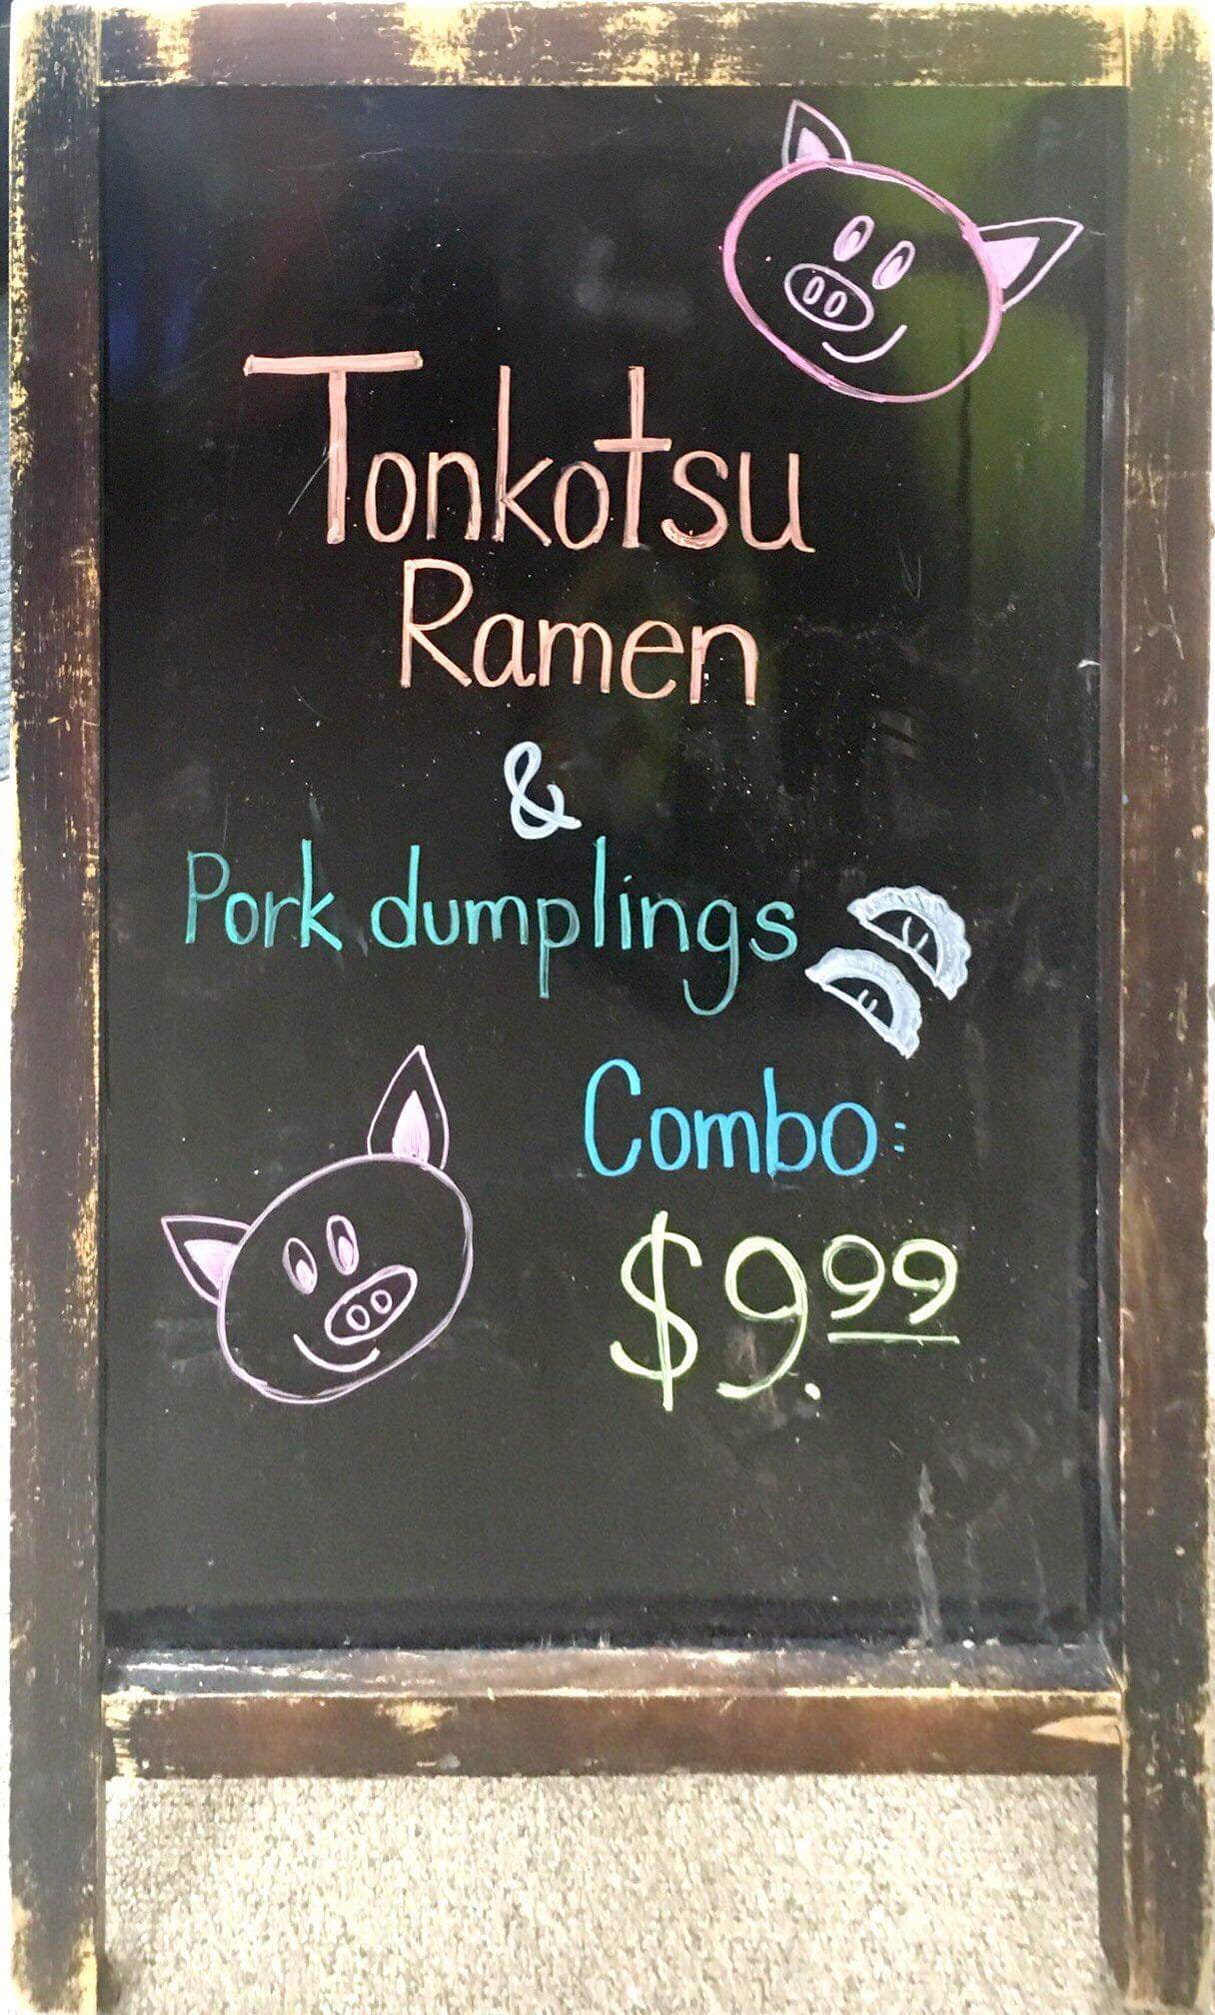 Tonkotsu
Ramen
&
Pork dumplings
Combo:
$9.99